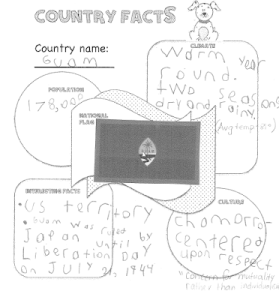 COUNTRY FACTS
Country name:
Guam
CLIMATE
Warm year
round.
two seas
dry and rainy ons
POPULATION
178,000
NATIONAL
FLAG
INTERESTING FACTS
• US territory
• Guam was ruled
Japan until by
Liberation Day
on JULY 21, 1944
CULTURE
Chamorro-
centered
upon respect